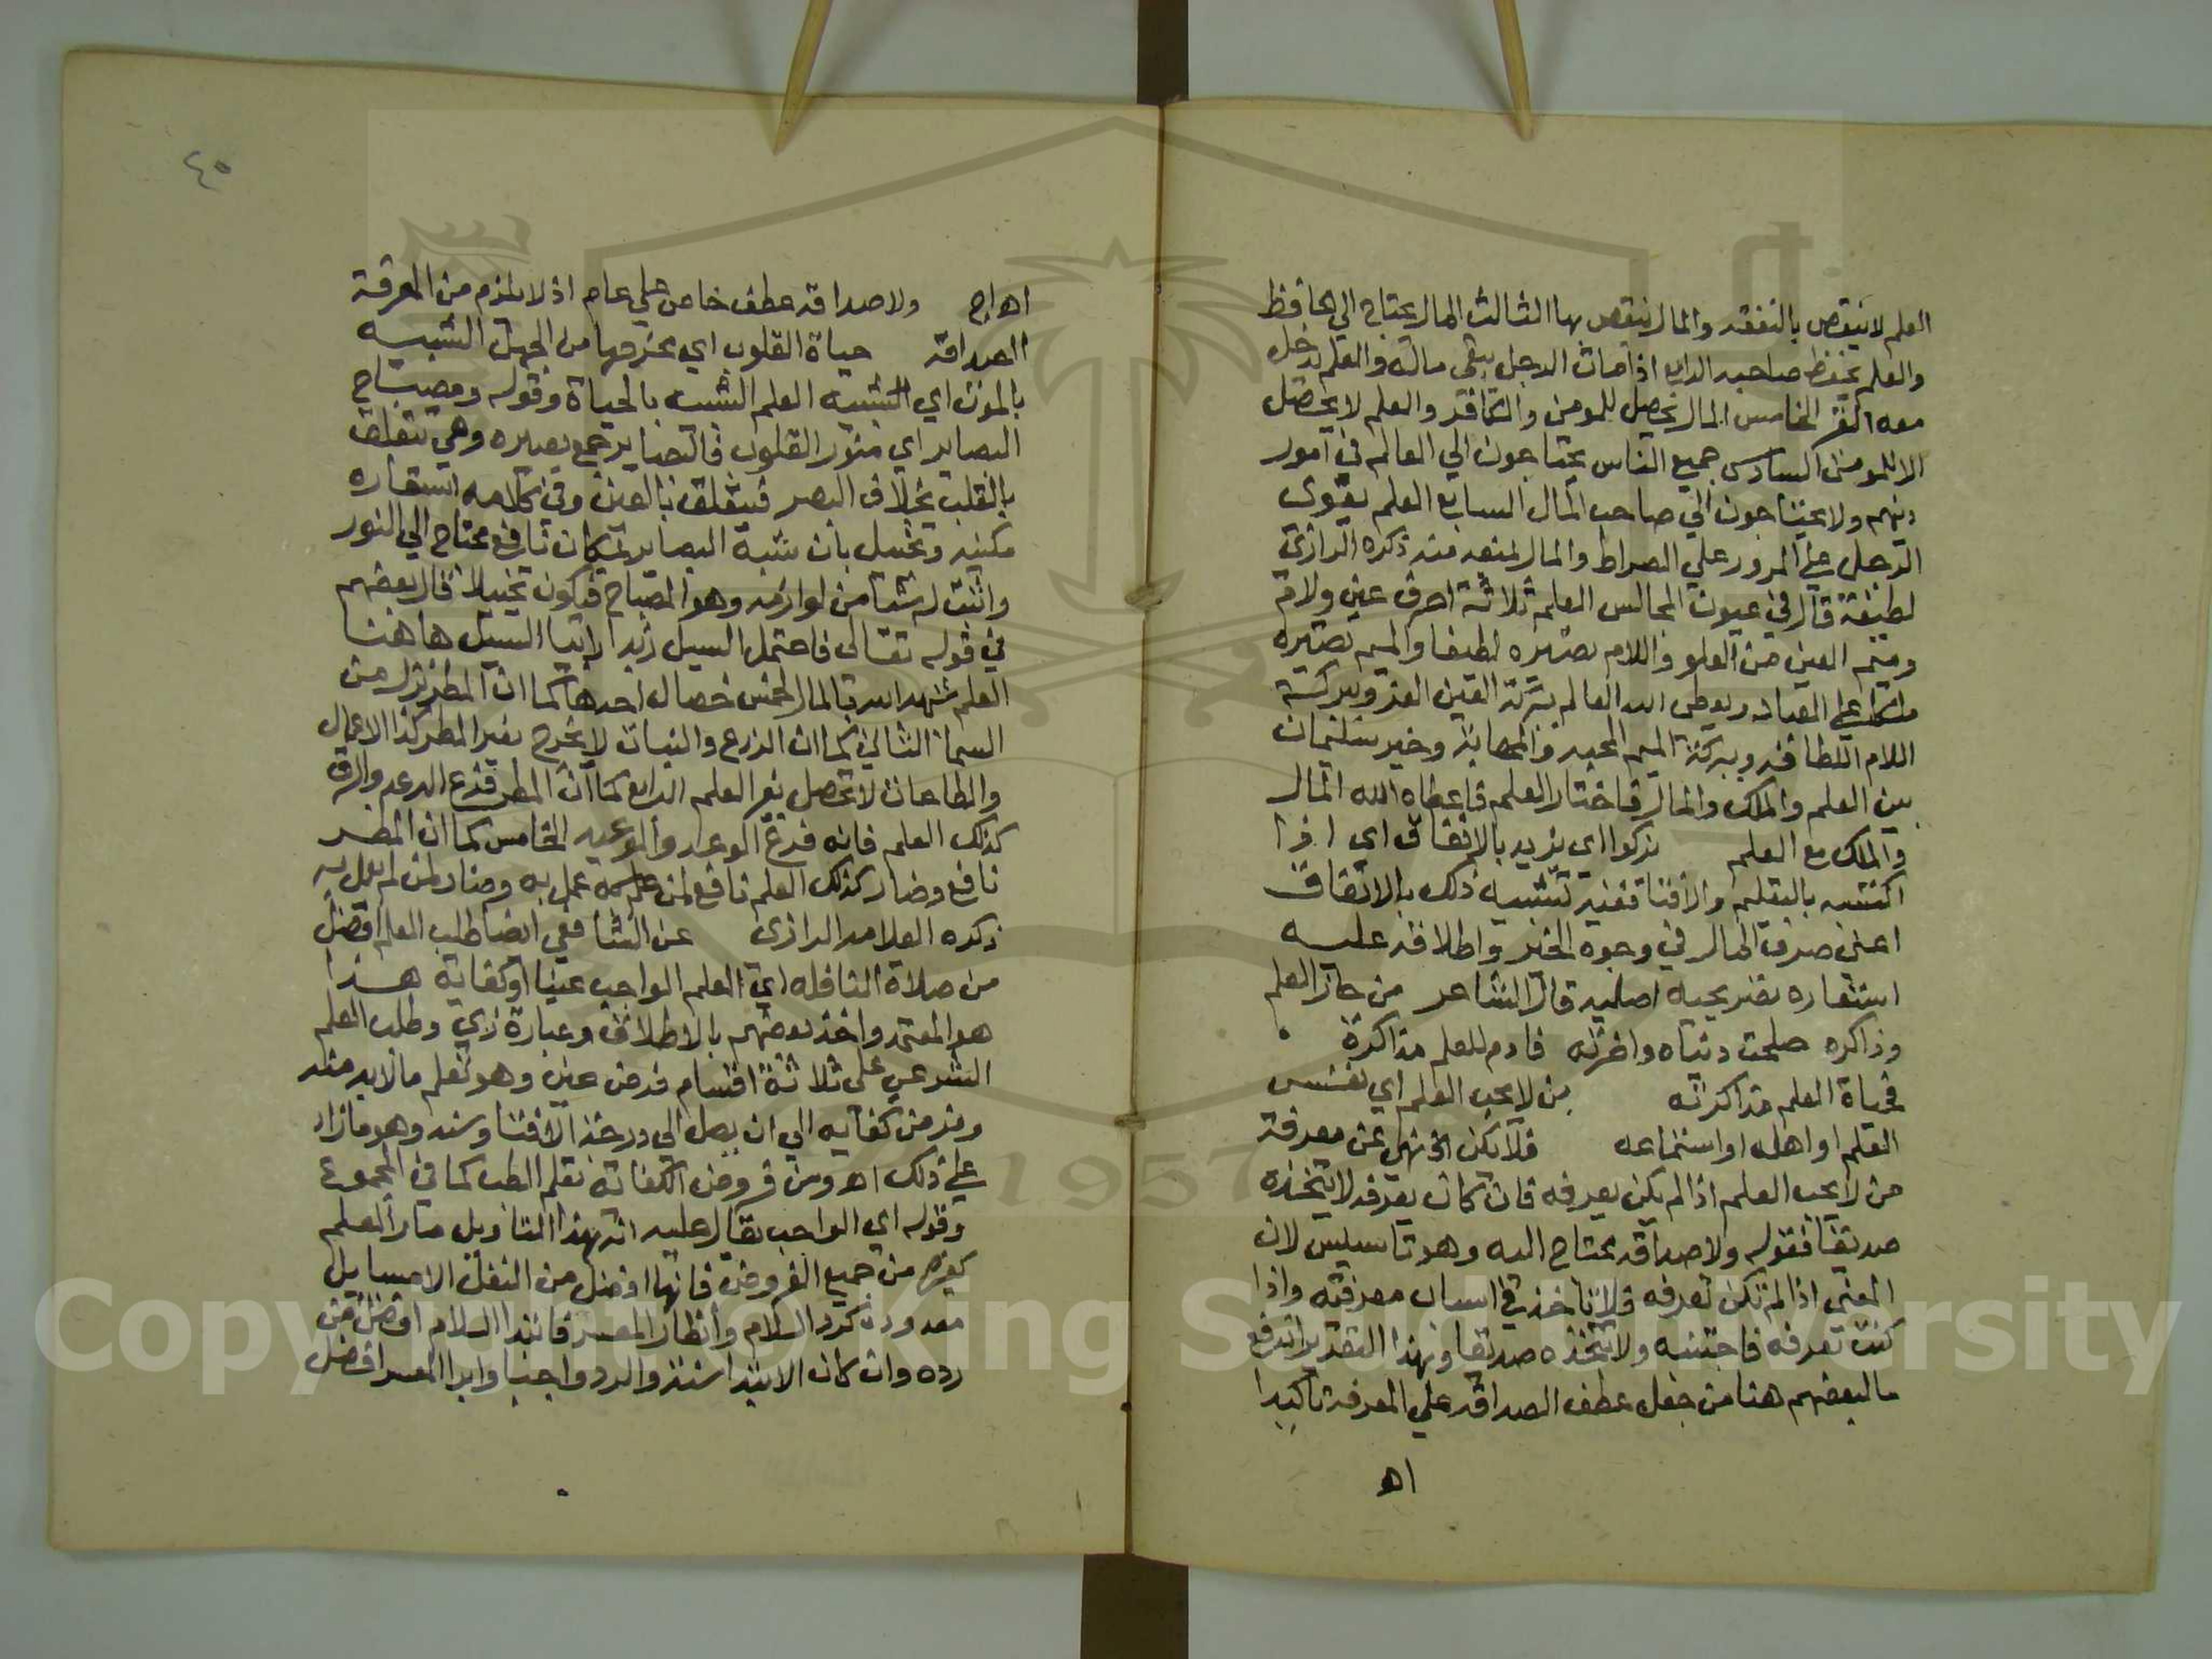 العلم لا ينقص بالنفقه والمال ينقص بها الثالث المال يحتاج الي الحافظ
والعلم يحفظ صاحبه الرابع اذا مات الرجل يبقى ماله والعلم يدخل
معه القبر الخامس المال يحصل للمومن والكافر والعلم لا يحصل
الا للمومن السادس جميع الناس يحتاجون الي العالم في امور
دينهم ولا يحتاجون الي صاحب المال السابع العلم يقوى
الرجل علي المرور علي الصراط والمال يمنعه منه ذكره الرازي
لطيفة قال في عيون المجالس العلم ثلاثة احرف عين ولام
وميم العين من العلو واللام تصيره لطيفا والميم تصيره
ملكا علي العباد ويعطى الله العالم ببركة العين العز وببركة
اللام اللطافه وببركة الميم المحبه والمهابة وخير سليمان
بين العلم والملك والمال فاختار العلم فاعطاه الله المال
والملك مع العلم يزكوا اى يزيد بالانفاق اى اذا
اكتسبه بالتعليم والافتا ففيه تشبيه ذلك بالانفاق
اعنى صرف المال في وجوه الخير واطلاقه عليه
استعاره تصريحيه اصليه قال الشاعر من حاز العلم
وذاكره صلحت دنياه واخرته فادم للعلم مذاكرة
فحياة العلم مذاكرته من لا يحب العلم اي نفس
العلم او اهله او استماعه فلا يكن الخ نهى عن معرفة
من لا يحب العلم اذا لم يكن يعرفه فان كان يعرفه لا يتخذه
صديقا فقوله ولا صداقه محتاج اليه وهو تاسيس لان
المعني اذا لم تكن تعرفه فلا تاخذ في اسباب معرفته واذا
كنت تعرفه فاجتنبه ولا تتخذه صديقا وبهذا التقدير اندفع
ما لبعضهم هنا من جعل عطف الصداقه علي المعرفة تاكيدا
اه
٤٥
اه اج ولا صداقه عطف خاص علي عام اذ لا يلزم من المعرفة
الصداقة حياة القلوب اي مخرجها من الجهل الشبيه
بالموت اي الشبيه العلم الشبيه بالحياة وقوله ومصباح
البصاير اي منور القلوب فالبصاير جمع بصيره وهي تتعلق
بالقلب بخلاف البصر فيتعلق بالعين وفي كلامه استعاره
مكنيه وتخييل بان شبه البصاير بمكان نافع محتاج الي النور
واثبت له شيا من لوازمه وهو المصباح فيكون تخييلا قال بعضهم
في قوله تعالى فاحتمل السيل زبدا رابيا السيل هاهنا
العلم شبهه الله بالماء لخمس خصال احدها كما ان المطر ينزل من
السماء الثاني كما ان الزرع والنبات لا يخرج بغير المطر كذا الاعمال
والطاعات لا تحصل بغير العلم الرابع كما ان المطر فرع الرعد والبرق
كذلك العلم فانه فرع الوعد والوعيد الخامس كما ان المطر
نافع وضار كذلك العلم نافع لمن عمل به وضار لمن لم يعمل به
ذكره العلامه الرازي عن الشافعي ايضا طلب العلم افضل
من صلاة النافله اي العلم الواجب عينا او كفاية هذا
هو المعتمد واخذ بعضهم بالاطلاق وعبارة زي وطلب العلم
الشرعي على ثلاثة اقسام فرض عين وهو تعلم ما لا بد منه
وفرض كفايه الي ان يصل الي درجة الافتا وسنه وهو ما زاد
علي ذلك اه ومن فروض الكفاية تعلم الطب كما في المجموع
وقوله اي الواجب يقال عليه انه بهذا التاويل صار العلم
كغيره من جميع الفروض فانها افضل من النفل الا مسايل
معدودة كرد السلام وانظار المعسر فابتدا السلام افضل من
رده وان كان الابتدا سنة والرد واجبا وابرا المعسر افضل